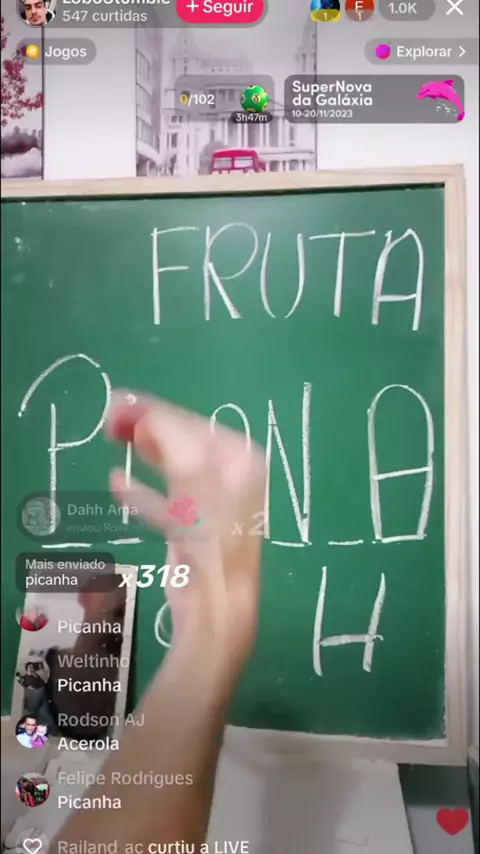 LoboStumble
547 curtidas
+ Seguir
1
1
1.0K
Jogos
Explorar
0/102
3h47m
SuperNova
da Galáxia
10-20/11/2023
FRUTA
P I N A
H
Dahh Ama
enviou Rosa
x2
Mais enviado
picanha
x318
Picanha
Weltinho
Picanha
Rodson AJ
Acerola
Felipe Rodrigues
Picanha
Railand_ac curtiu a LIVE